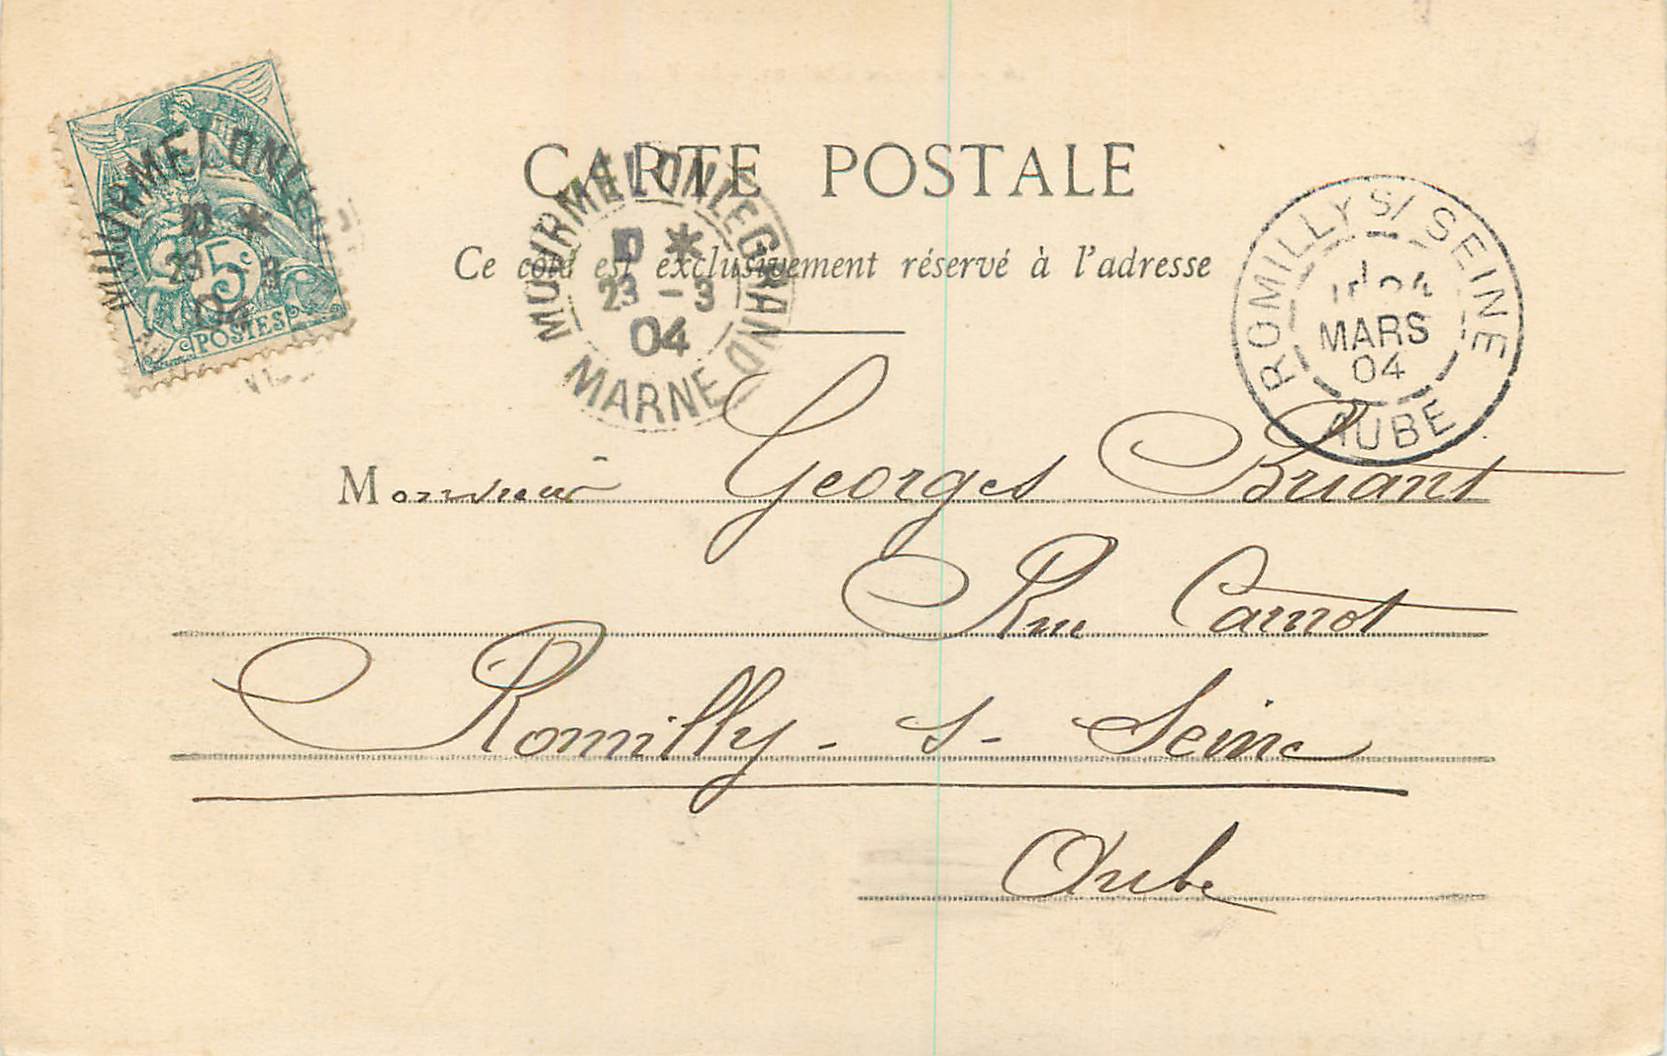 CARTE POSTALE
Ce côté est exclusivement réservé à l'adresse
5c
POSTES
MOURMELON LE GRAND
23 - 3
04
MOURMELON LE GRAND
23 - 3
04
MARNE
ROMILLY S/ SEINE
24
MARS
04
AUBE
Monsieur Georges Briant
Rue Carnot
Romilly - s - Seine
Aube